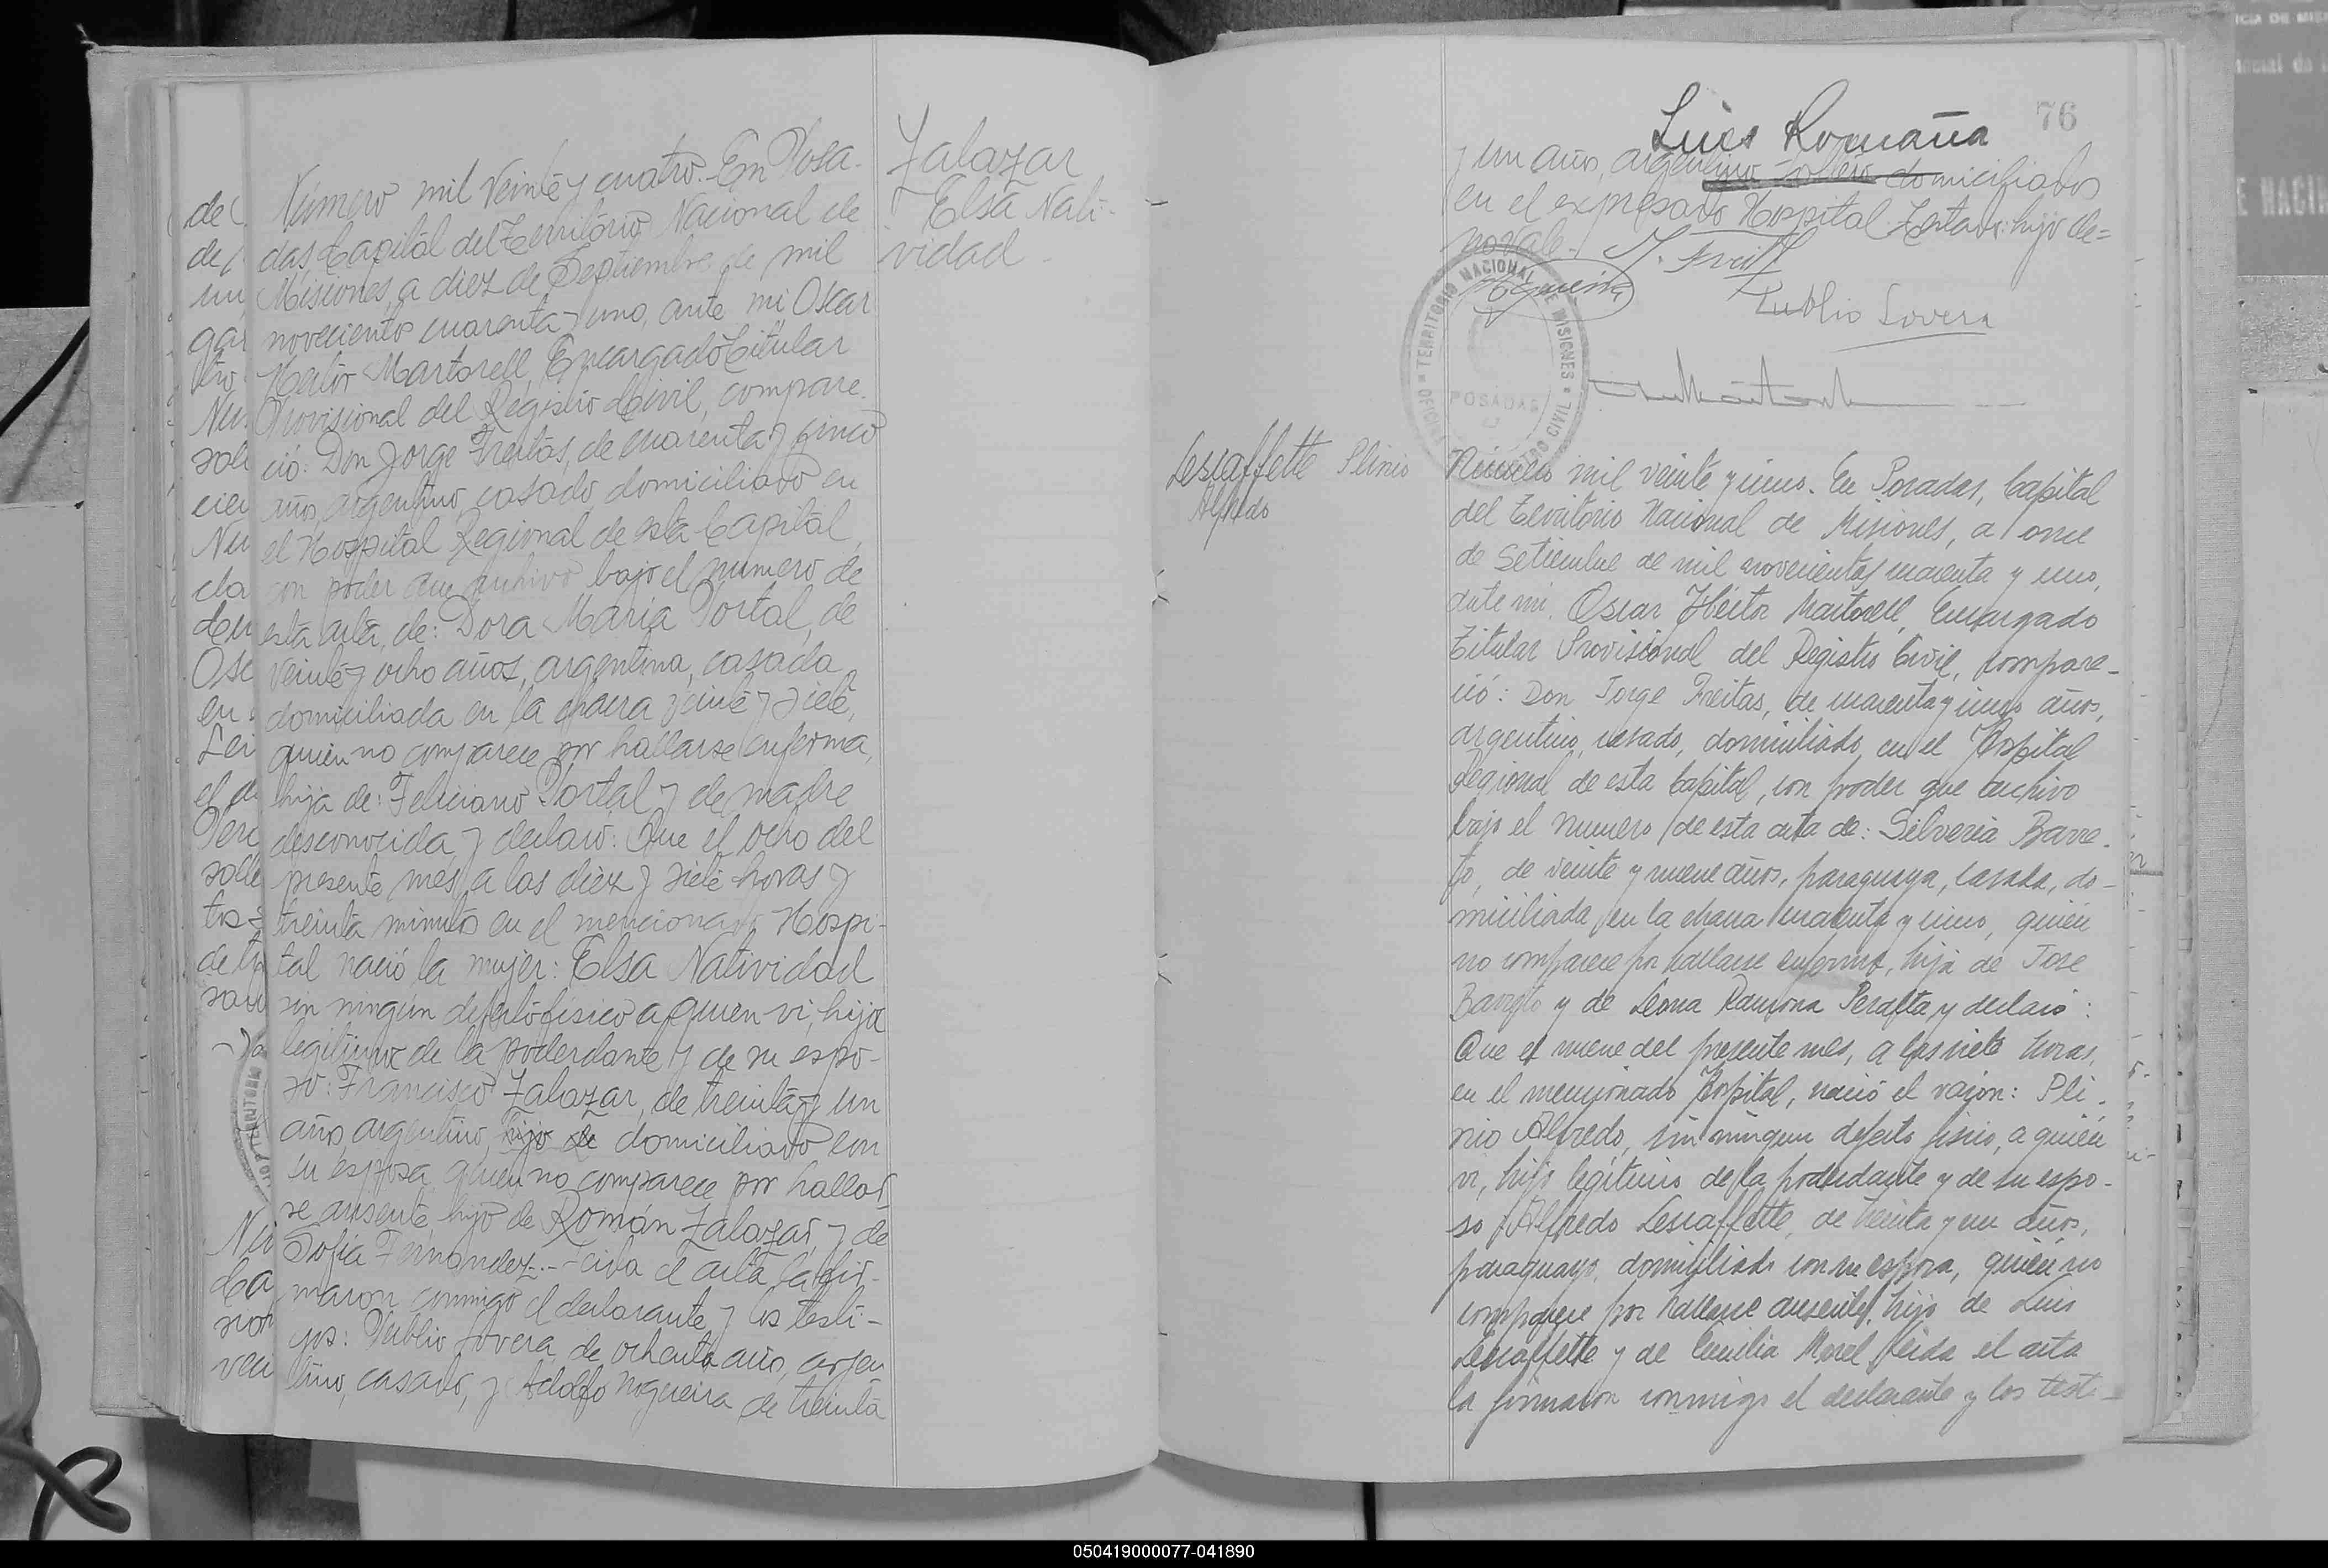 Número mil veinte y cuatro.- En Posa-
das, Capital del Territorio Nacional de
Misiones, a diez de Septiembre de mil
novecientos cuarenta y uno, ante mi Oscar
Hector Martorell, Encargado Titular
Provisional del Registro Civil, compare-
ció: Don Jorge Freitas, de cuarenta y cinco
años, argentino, casado, domiciliado en
el Hospital Regional de esta Capital,
con poder que archivo bajo el numero de
esta acta, de: Dora Maria Portal, de
veinte y ocho años, argentina, casada,
domiciliada en la chacra veinte y siete,
quien no comparece por hallarse enferma,
hija de: Feliciano Portal y de madre
desconocida y declaró: Que el ocho del
presente mes, a las diez y siete horas y
treinta minutos en el mencionado Hospi-
tal nació la mujer: Elsa Natividad
sin ningún defecto físico a quien vi, hija
legítima de la poderdante y de su espo-
so: Francisco Zalazar, de treinta y un
años, argentino, hijo de domiciliado con
su esposa, quien no comparece por hallar
se ausente, hijo de Román Zalazar y de
Sofía Fernandez.- Leida el acta la fir-
maron conmigo el declarante y los testi-
gos: Publio Lovera, de ochenta años, argen
tino, casado, y Adolfo Nogueira de treinta
Zalazar
Elsa Nati-
vidad
Luis Romaña
76
y un años, argentino soltero domiciliados
en el expresado Hospital. Testado: hijo de=
no vale.-
J. Freitas
Publio Lovera
TERRITORIO NACIONAL DE MISIONES
POSADAS
REGISTRO CIVIL
Lescaffette Plinio
Alfredo
Número mil veinte y cinco. En Posadas, Capital
del Territorio Nacional de Misiones, a once
de Setiembre de mil novecientos cuarenta y uno,
ante mi, Oscar Héctor Martorell, Encargado
Titular Provisional del Registro Civil, compare-
ció: Don Jorge Freitas, de cuarenta y cinco años,
argentino, casado, domiciliado en el Hospital
Regional de esta Capital, con poder que archivo
bajo el numero de esta acta de: Silveria Barre-
to, de veinte y nueve años, paraguaya, casada, do-
miciliada en la chacra cuarenta y cinco, quién
no comparece por hallarse enferma, hija de José
Barreto y de Leona Ramona Peralta y declaró:
Que el nueve del presente mes, a las siete horas,
en el mencionado Hospital, nació el varón: Pli-
nio Alfredo, sin ningun defecto fisico, a quién
vi, hijo legítimo de la poderdante y de su espo-
so Alfredo Lescaffette, de treinta y un años,
paraguayo, domiciliado con su esposa, quién no
comparece por hallarse ausente, hijo de Luis
Lescaffette y de Cecilia Morel. Leida el acta
la firmaron conmigo el declarante y los testi-
050419000077-041890